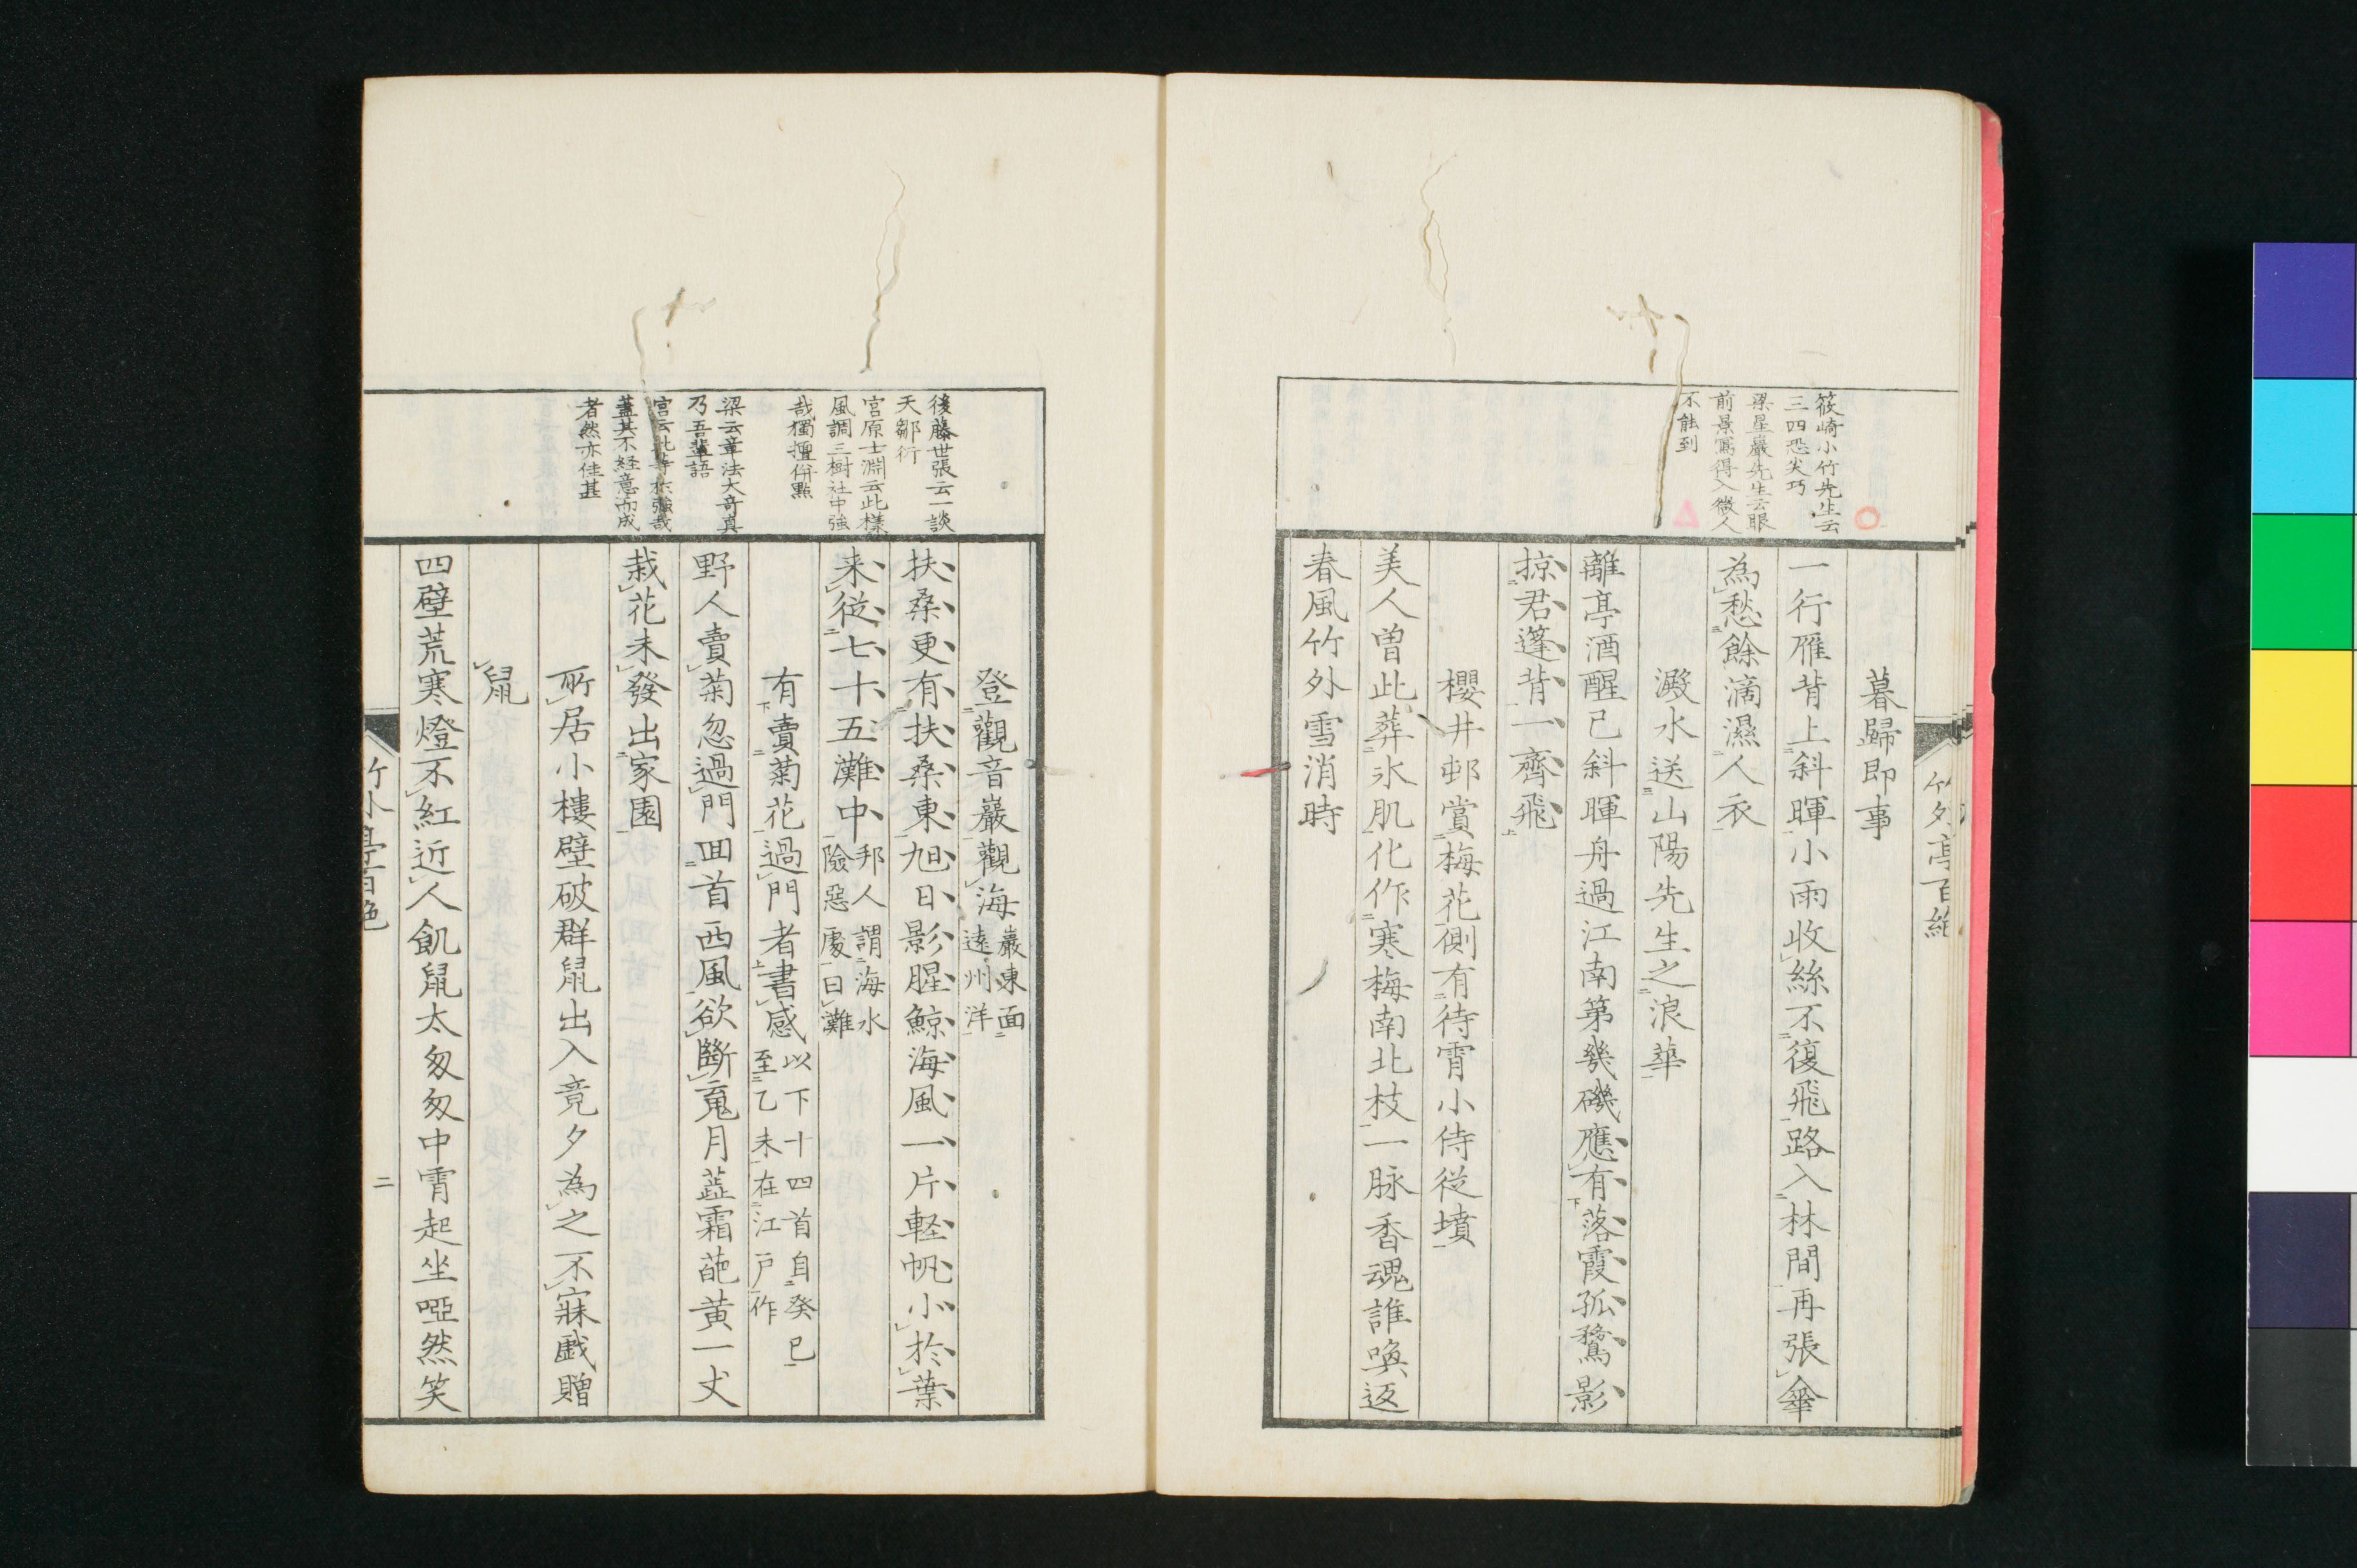 竹外亭百絶
筱崎小竹先生云
三四恐尖巧
梁星巖先生云眼
前景寫得入微人
不能到
暮歸即事
一行雁背上斜暉小雨收絲不復飛路入林間再張傘
為愁餘滴濕人衣
澱水送山陽先生之浪華
離亭酒醒已斜暉舟過江南第幾磯應有落霞孤鶩影
掠君蓬背一齊飛
櫻井邨賞梅花側有待宵小侍從墳
美人曽此葬氷肌化作寒梅南北枝一脉香魂誰喚返
春風竹外雪消時
後藤世張云一談
天鄒衍
宮原士淵云此樣
風調三樹社中強
哉獨擅併點
梁云章法大奇真
乃吾輩語
蓋其不経意而成
者然亦佳甚
登觀音巖觀海巖東面遠州洋
扶桑更有扶桑東旭日影腥鯨海風一片軽帆小於葉
来從七十五灘中邦人謂海水險惡處曰灘
有賣菊花過門者書感以下十四首自癸巳至乙未在江戸作
野人賣菊忽過門回首西風欲斷䰟月蕋霜葩黄一丈
栽花未發出家園
所居小樓壁破群鼠出入竟夕為之不寐戯贈
鼠
四壁荒寒燈不紅近人飢鼠太匆匆中霄起坐啞然笑
竹外亭百絶
二